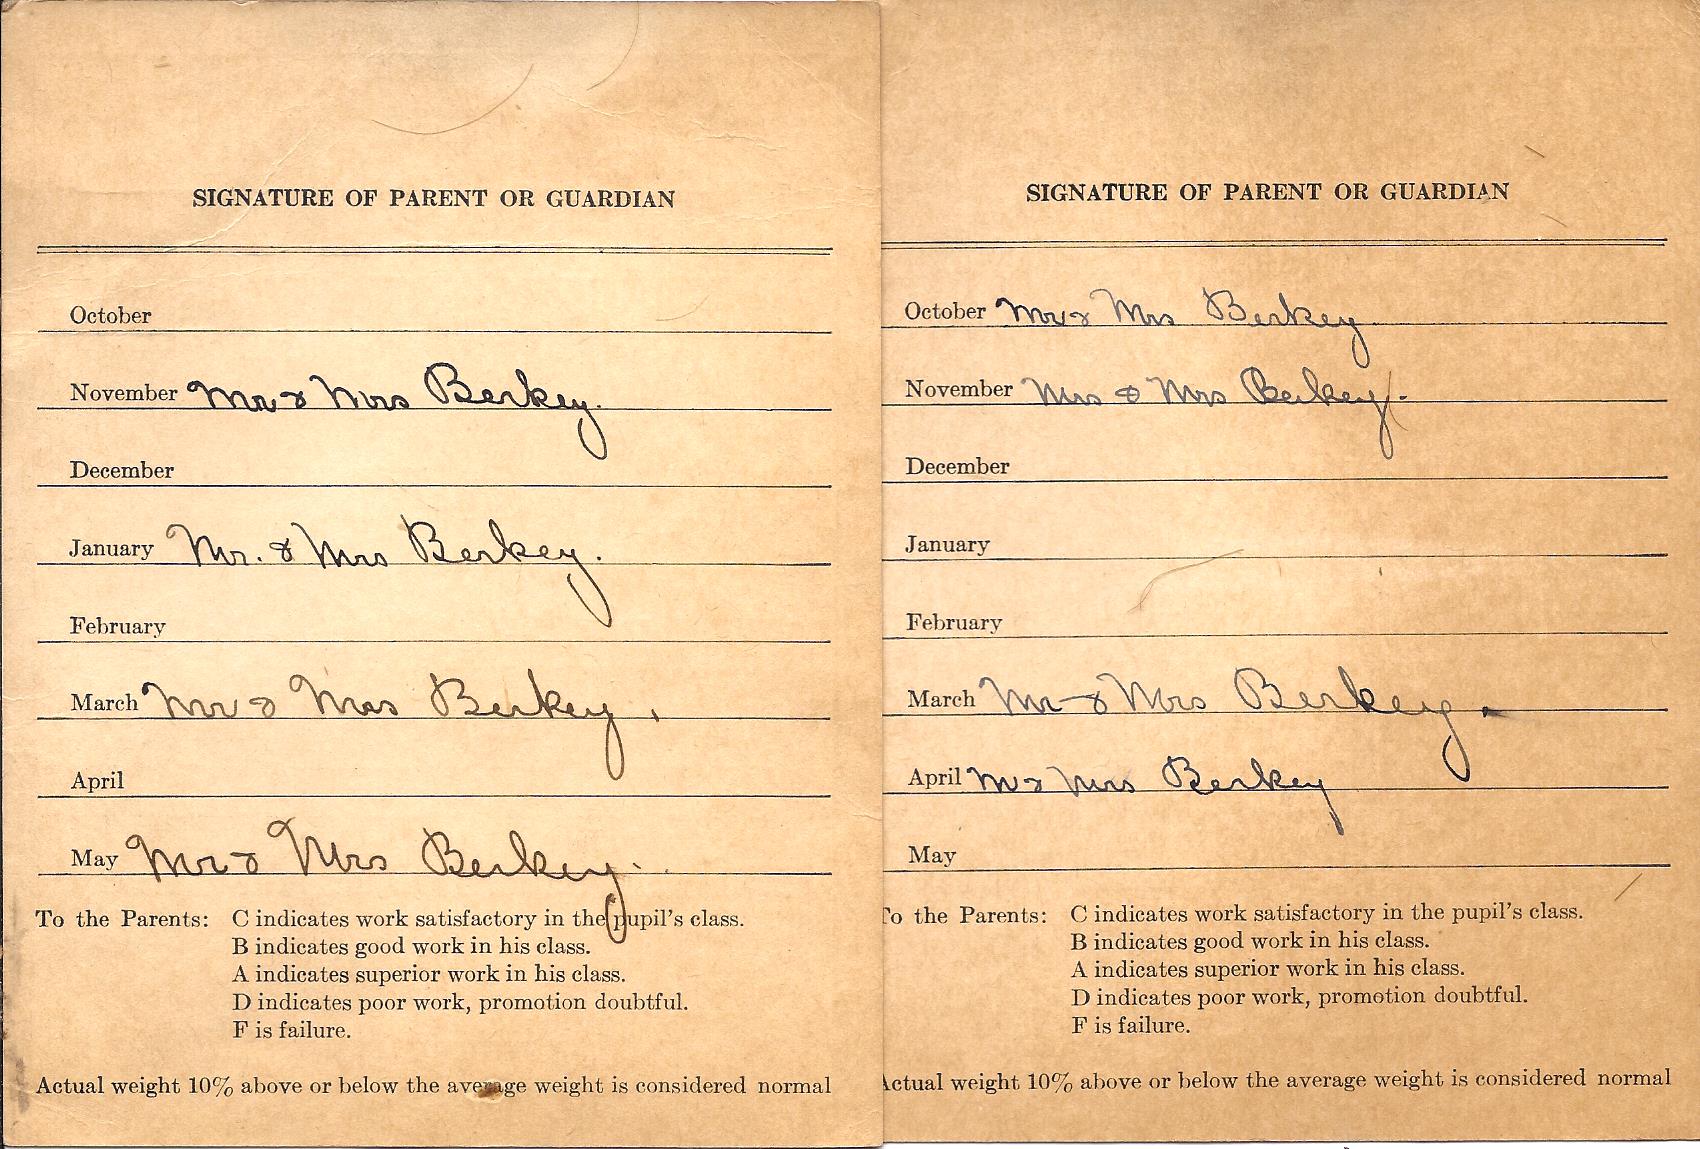 SIGNATURE OF PARENT OR GUARDIAN
October
November Mr & Mrs Berkey.
December
January Mr. & Mrs Berkey.
February
March Mr & Mrs Berkey.
April
May Mr & Mrs Berkey.
To the Parents: C indicates work satisfactory in the pupil's class.
B indicates good work in his class.
A indicates superior work in his class.
D indicates poor work, promotion doubtful.
F is failure.
Actual weight 10% above or below the average weight is considered normal
SIGNATURE OF PARENT OR GUARDIAN
October Mr & Mrs Berkey
November Mrs & Mrs Berkey.
December
January
February
March Mr & Mrs Berkey.
April M & Mrs Berkey
May
To the Parents: C indicates work satisfactory in the pupil's class.
B indicates good work in his class.
A indicates superior work in his class.
D indicates poor work, promotion doubtful.
F is failure.
Actual weight 10% above or below the average weight is considered normal